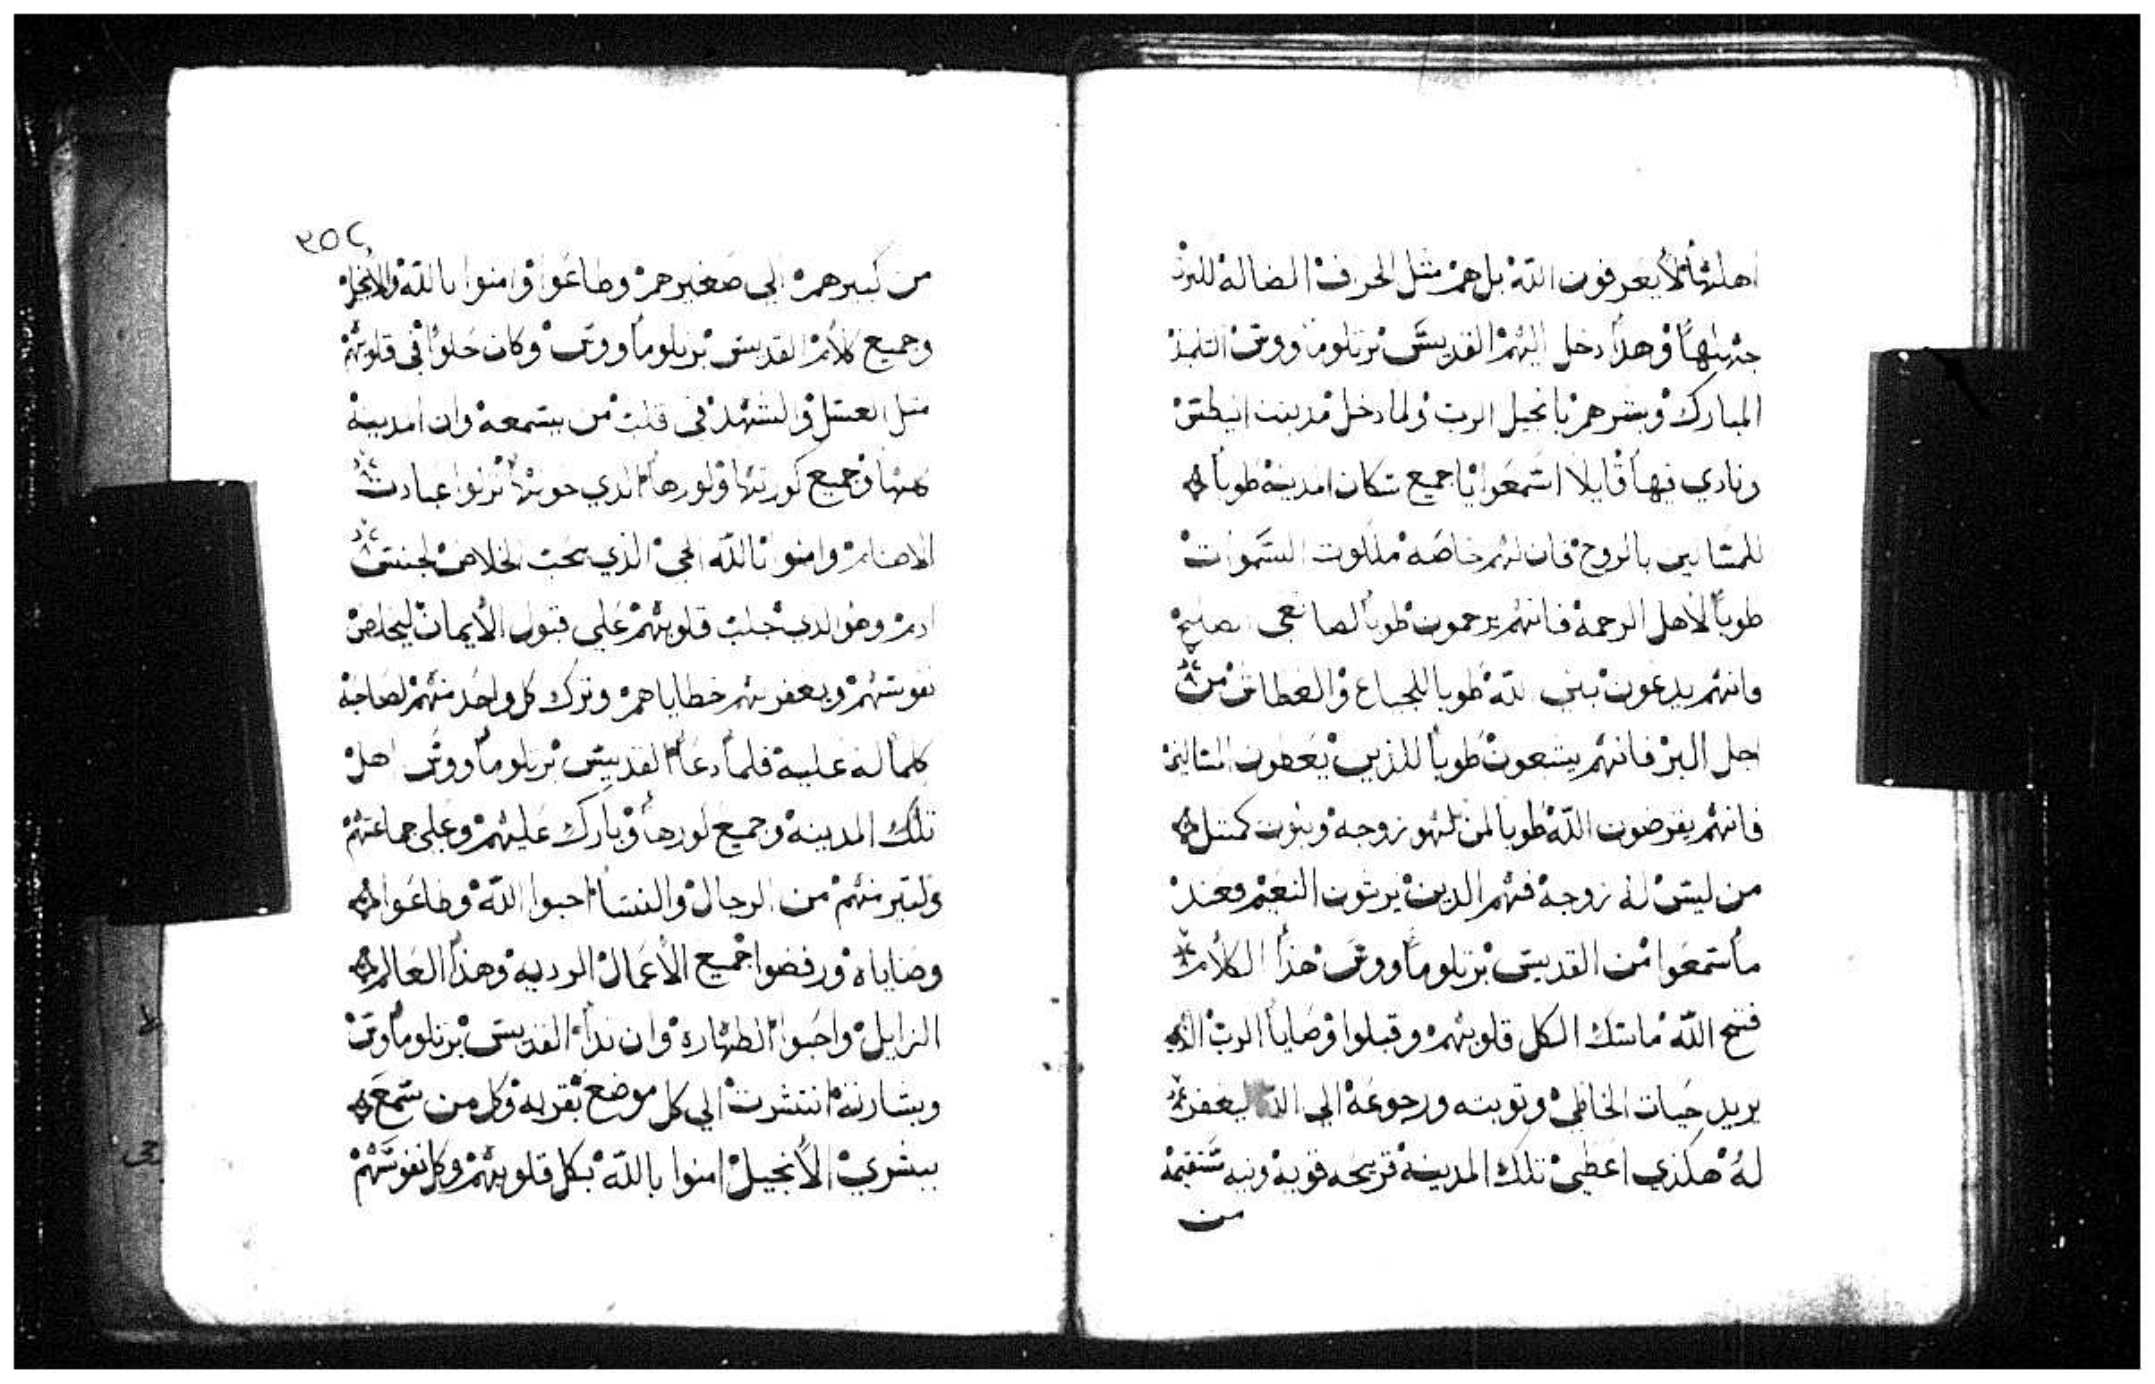 اهلها لا يعرفون الله بل هم مثل الخرف الضاله للبرد
جهلها وهذا دخل اليهم القديس برتلوماووس التلمذ
المبارك وبشرهم بانجيل الرب ولما دخل مدينت انيطس
ونادي فيها قايلا استمعوا يا جميع سكان امدينه طوبا
للمساكين بالروح فان لهم خاصه ملكوت السموات
طوبا لاهل الرحمة فانهم يرحمون طوبا لصانعى الصلح
فانهم يدعون بني الله طوبا للجياع والعطاش من
اجل البر فانهم يشبعون طوبا للذين يعطون المساكين
فانهم يقرضون الله طوبا لمن لهو زوجه ويكون كمثل
من ليس له زوجه فهم الدين يرثون النعيم فعند
ما استمعوا من القديس برتلوماووس هذا الكلام
فتح الله ماسك الكل قلوبهم وقبلوا وصايا الرب الذي
يريد حيات الخاطى وتوبته ورجوعه الى الله ليغفر
له هكذي اعطي تلك المدينه قريحه قويه ونيه مستقيمه
من
٢٥٤
من كبيرهم الى صغيرهم وطاعوا وامنوا بالله والانجيل
وجميع كلام القديس برتلوماووس وكان حلوا في قلوبهم
مثل العسل والشهد في قلب من يسمعه وان امدينة
كلها وجميع كورتها وكورها الذي حولها تركوا عبادت
الاصنام وامنوا بالله الحي الذي يحب الخلاص لجنس
ادم وهو الدي جلب قلوبهم على قبول الايمان ليخلص
نفوسهم ويغفر لهم خطاياهم وترك كل واحد منهم لصاحبه
كلما له عليه فلما دعا القديس برتلوماووس اهل
تلك المدينه وجميع كورها وبارك عليهم وعلى جماعتهم
وكتير منهم من الرجال والنسا احبوا الله وطاعوا
وصاياه ورفضوا جميع الاعمال الرديه وهذا العالم
الزايل واحبوا الطهاره وان ندا القديس برتلوماوس
وبشارته انتشرت الى كل موضع بقربه وكل من سمع
ببشري الانجيل امنوا بالله بكل قلوبهم وكل نفوسهم